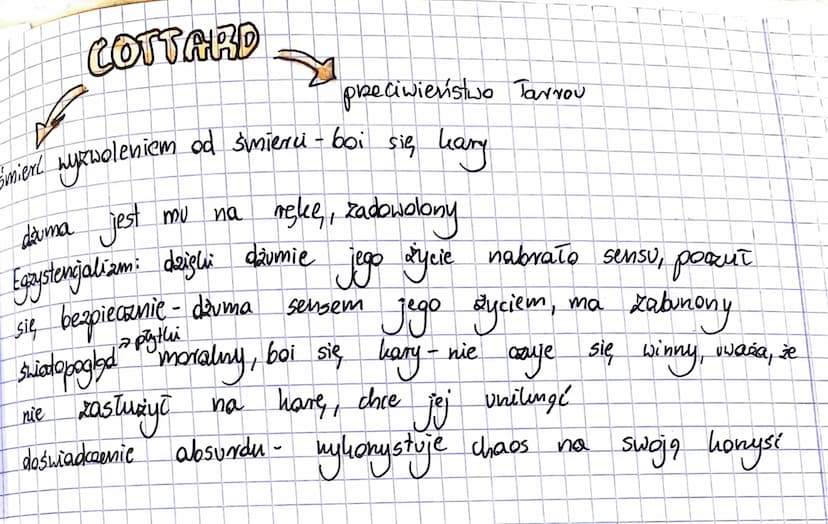 COTTARD
przeciwieństwo Tarrou
śmierć wyzwoleniem od śmierci - boi się kary
dżuma jest mu na rękę, zadowolony
Egzystencjalizm: dzięki dżumie jego życie nabrało sensu, poczuł
się bezpiecznie - dżuma sensem jego życiem, ma zaburzony
światopogląd → płytki moralny, boi się kary - nie czuje się winny, uważa, że
nie zasłużył na karę, chce jej uniknąć
doświadczenie absurdu - wykorzystuje chaos na swoją korzyść